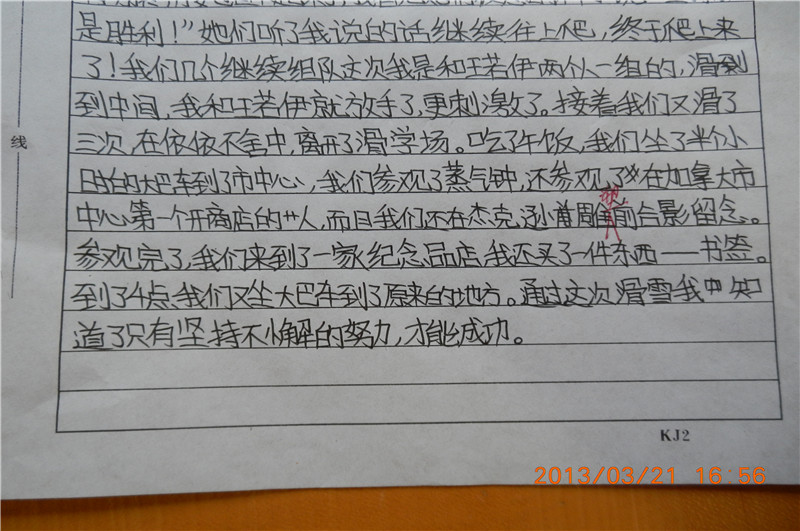 是胜利！”她们听了我说的话继续往上爬，终于爬上来
了！我们几个继续组队这次我是和王若伊两个人一组的，滑到
到中间，我和王若伊就放手了，更刺激了。接着我们又滑了
三次，在依依不舍中，离开了滑学场。吃了午饭，我们坐了半个小
时的大巴车到了市中心，我们参观了蒸气钟，还参观了在加拿大市
中心第一个开商店的人，而且我们还在杰克，逊前合影留念。
参观完了，我们来到了一家纪念品店，我还买了一件东西——书签。
到了4点，我们又坐大巴车到了原来的地方。通过这次滑雪我中知
道了只有坚持不懈的努力，才能成功。
线
KJ2
2013/03/21 16:56